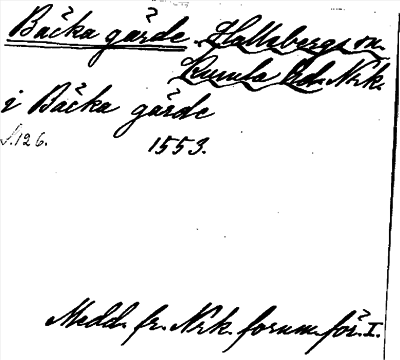 Bäcka gärde Hallsbergs sn.
Kumla hd. Nrk.
i Bäcka gärde
s. 126. 1553.
Medd. fr. Nrk. fornm.för. I.